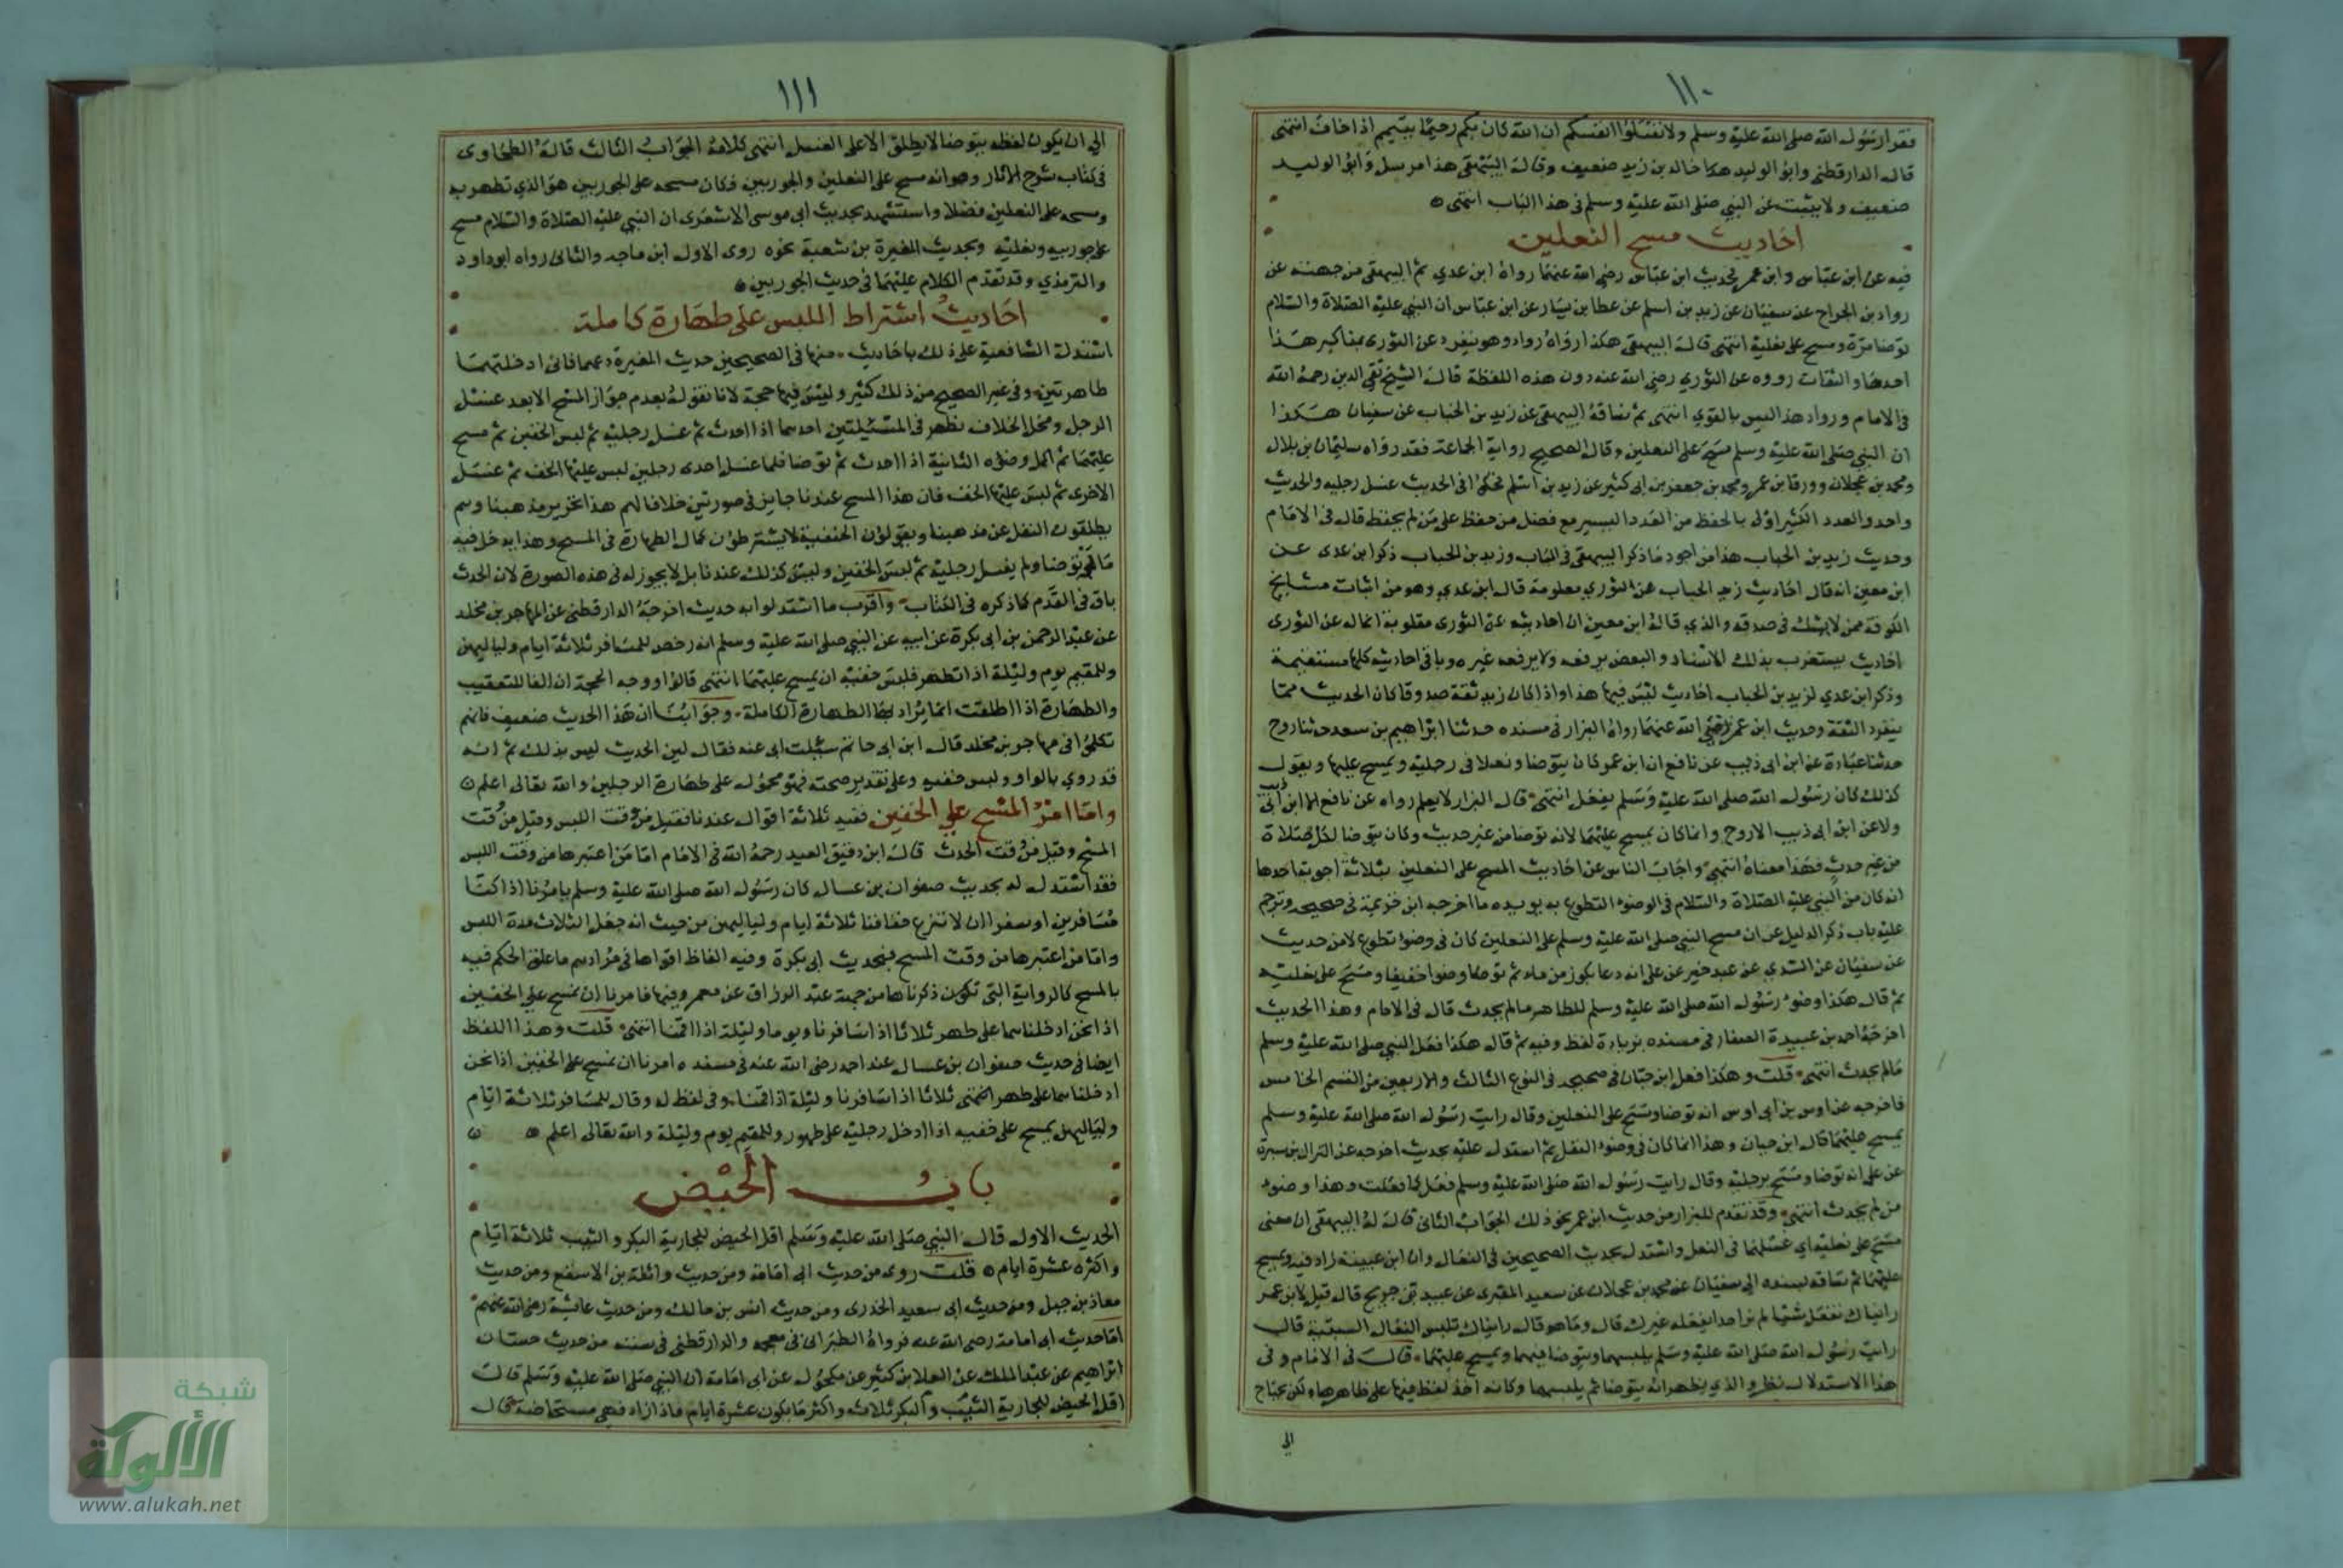 ١١٠
فقرا رسول الله صلى الله عليه وسلم ولا تقتلوا انفسكم ان الله كان بكم رحيما يتيمم اذا خاف انتهى
قال الدارقطني وابو الوليد هكا خالد بن زيد ضعيف وقال البيهقي هذا مرسل وابو الوليد
ضعيف ولا يثبت عن النبي صلى الله عليه وسلم في هذا الباب انتهى
احاديث مسح النعلين
فيه عن ابن عباس وابن عمر فحديث ابن عباس رضي الله عنهما رواه ابن عدي ثم البيهقي من جهته عن
رواد بن الجراح عن سفيان عن زيد بن اسلم عن عطا بن يسار عن ابن عباس ان النبي عليه الصلاة والسلام
توضا مرة ومسح على نعليه انتهى قال البيهقي هكذا رواه رواد وهو ينفرد عن الثوري بمناكير هذا
احدها والثقات رووه عن الثوري رضي الله عنه دون هذه اللفظة قال الشيخ تقي الدين رحمه الله
في الامام ورواد هذا ليس بالقوي انتهى ثم ساقه البيهقي عن زيد بن الحباب عن سفيان هكذا
ان النبي صلى الله عليه وسلم مسح على النعلين وقال الصحيح رواية الجماعة فقد رواه سليمان بن بلال
ومحمد بن عجلان وورقا بن عمر ومحمد بن جعفر بن ابي كثير عن زيد بن اسلم فحكوا في الحديث غسل رجليه والحديث
واحد والعدد الكثير اولى بالحفظ من العدد اليسير مع فضل من حفظ على من لم يحفظ قال في الامام
وحديث زيد بن الحباب هذا من اجود ما ذكر البيهقي في الباب وزيد بن الحباب ذكر ابن عدي عن
ابن معين انه قال احاديث زيد الحباب عن الثوري مقلوبة قال ابن عدي وهو من اثبات مشايخ
الكوفة ممن لا يشك في صدقه والذي قاله ابن معين ان احاديثه عن الثوري مقلوبة انما له عن الثوري
احاديث يستغرب بذلك الاسناد والبعض يرفعه ولا يرفعه غيره وباقي احاديثه كلها مستقيمة
وذكر ابن عدي لزيد بن الحباب احاديث ليس فيها هذا واذا كان زيد ثقة صدوقا كان الحديث مما
ينفرد الثقة وحديث ابن عمر رضي الله عنهما رواه البزار في مسنده حدثنا ابراهيم بن سعد حدثنا روح
حدثنا عبادة عن ابن ابي ذيب عن نافع ان ابن عمر كان يتوضا ونعلا في رجليه ويمسح عليها ويقول
كذلك كان رسول الله صلى الله عليه وسلم يفعل انتهى قال البزار لا يعلم رواه عن نافع الا ابن ابي ذيب
ولا عن ابن ابي ذيب الا روح وانما كان يمسح عليهما لانه توضا من غير حديث وكان يتوضا لكل صلاة
من غير حدث فهذا معناه انتهى واجاب الناس عن احاديث المسح على النعلين بثلاثة اجوبة احدها
انه كان من النبي عليه الصلاة والسلام في الوضوء التطوع به يويده ما اخرجه ابن خزيمة في صحيحه وترجم
عليه باب ذكر الدليل عن ان مسح النبي صلى الله عليه وسلم على النعلين كان في وضوء تطوع لا من حديث
عن سفيان عن السدي عن عبد خير عن علي انه دعا بكوز من ماء ثم توضا وضوا خفيفا ومسح على نعليه
ثم قال هكذا وضوء رسول الله صلى الله عليه وسلم للطاهر ما لم يحدث قال في الامام وهذا الحديث
اخرجه احمد بن عبيدة الصفار في مسنده بزيادة لفظ وفيه ثم قال هكذا فعل النبي صلى الله عليه وسلم
مالم يحدث انتهى قلت وهكذا فعل ابن حبان في صحيحه في النوع الثالث والاربعين من القسم الخامس
فاخرجه عن اوس بن ابي اوس انه توضا ومسح على النعلين وقال رايت رسول الله صلى الله عليه وسلم
يمسح عليهما قال ابن حبان وهذا انما كان في وضوء النفل ثم استدل عليه بحديث اخرجه عن النزال بن سبرة
عن علي انه توضا ومسح برجليه وقال رايت رسول الله صلى الله عليه وسلم فعل كما فعلت وهذا وضوء
من لم يحدث انتهى وقد تقدم للبزار من حديث ابن عمر نحو ذلك الجواب الثاني قال له البيهقي ان معنى
مسح على نعليه اي غسلهما في النعل واستدل بحديث الصحيحين في النعال وان ابن عيينة زاد فيه ويمسح
عليهما ثم ساقه بسنده الى سفيان عن محمد بن عجلان عن سعيد المقبري عن عبيد بن جريج قال قيل لابن عمر
رايناك تفعل شيئا لم نر احدا يفعله غيرك قال وما هو قال رايناك تلبس النعال السبتية قال
رايت رسول الله صلى الله عليه وسلم يلبسهما ويتوضا فيهما ويمسح عليهما قال في الامام وفي
هذا الاستدلال نظر والذي يظهر انه يتوضا ثم يلبسهما وكانه اخذ لفظ فيها على ظاهرها ولكن يحتاج
الى
١١١
الي ان يكون لفظه يتوضا لا يطلق الا على الغسل انتهى كلامه الجواب الثالث قاله الطحاوي
في كتاب شرح الاثار وهو انه مسح على النعلين والجوربين وكان مسحه على الجوربين هو الذي تطهر به
ومسحه على النعلين فضلا واستشهد بحديث ابي موسى الاشعري ان النبي عليه الصلاة والسلام مسح
على جوربيه ونعليه وبحديث المغيرة بن شعبة نحوه روى الاول ابن ماجه والثاني رواه ابو داود
والترمذي وقد تقدم الكلام عليهما في حديث الجوربين
احاديث اشتراط اللبس على طهارة كاملة
استدلة الشافعية على ذلك باحاديث منها في الصحيحين حديث المغيرة دعهما فاني ادخلتهما
طاهرتين وفي غير الصحيح من ذلك كثير وليس فيها حجة لانا نقول بعدم جواز المسح الا بعد غسل
الرجل ومحل الخلاف يظهر في المسئلتين احدهما اذا احدث ثم غسل رجليه ثم لبس الخفين ثم مسح
عليهما ثم اكمل وضوءه الثانية اذا احدث ثم توضا فلما غسل احدى رجليه لبس عليها الخف ثم غسل
الاخرى ثم لبس عليها الخف فان هذا المسح عندنا جايز في صورتين خلافا لهم هذا تحرير مذهبنا وهم
يطلقون النقل عن مذهبنا ويقولون الحنفية لا يشترطون كمال الطهارة في المسح وهذا يدخل فيه
ما لو توضا ولم يغسل رجليه ثم لبس الخفين وليس كذلك عندنا بل لا يجوز له في هذه الصورة لان الحدث
باق في القدم كما ذكره في الكتاب واقرب ما استدلوا به حديث اخرجه الدارقطني عن المهاجر بن مخلد
عن عبد الرحمن بن ابي بكرة عن ابيه عن النبي صلى الله عليه وسلم انه رخص للمسافر ثلاثة ايام ولياليهن
وللمقيم يوم وليلة اذا تطهر فلبس خفيه ان يمسح عليهما انتهى قالوا ووجه الحجة ان الفا للتعقيب
والطهارة اذا اطلقت انما يراد بها الطهارة الكاملة وجوابنا ان هذا الحديث ضعيف فانهم
تكلموا في مهاجر بن مخلد قال ابن ابي حاتم سئلت ابي عنه فقال لين الحديث ليس بذلك ثم انه
قد روي بالواو ولبس خفيه وعلى تقدير صحته فهو محمول على طهارة الرجلين والله تعالى اعلم
واما امر المسح علي الخفين ففيه ثلاثة اقوال عندنا فقيل من وقت اللبس وقيل من وقت
المسح وقيل من وقت الحدث قال ابن دقيق العيد رحمه الله في الامام اما من اعتبرها من وقت اللبس
فقد استدل له بحديث صفوان بن عسال كان رسول الله صلى الله عليه وسلم يامرنا اذا كنا
مسافرين او سفرا ان لا ننزع خفافنا ثلاثة ايام ولياليهن من حيث انه جعل الثلاث مدة اللبس
واما من اعتبرها من وقت المسح فبحديث ابي بكرة وفيه الفاظ اقواها في مرادهم ما علق الحكم فيه
بالمسح كالرواية التي تكون ذكرناها من جهة عبد الرزاق عن معمر وفيها فامرنا ان نمسح علي الخفين
اذا نحن ادخلناهما على طهر ثلاثا اذا سافرنا ويوما وليلة اذا اقمنا انتهى قلت وهذا اللفظ
ايضا في حديث صفوان بن عسال عند احمد رضى الله عنه في مسنده امرنا ان نمسح على الخفين اذا نحن
ادخلناهما على طهر انتهى ثلاثا اذا سافرنا وليلة اذا اقمنا وفي لفظ له وقال للمسافر ثلاثة ايام
ولياليهن يمسح على خفيه اذا ادخل رجليه على طهور وللمقيم يوم وليلة والله تعالى اعلم
باب الحيض
الحديث الاول قال النبي صلى الله عليه وسلم اقل الحيض للجارية البكر والثيب ثلاثة ايام
واكثره عشرة ايام قلت روى من حديث ابي امامة ومن حديث واثلة بن الاسقع ومن حديث
معاذ بن جبل ومن حديث ابي سعيد الخدرى ومن حديث انس بن مالك ومن حديث عايشة رضي الله عنهم
اما حديث ابي امامة رضى الله عنه فرواه الطبراني في معجمه والدارقطني في سننه من حديث حسان
ابراهيم عن عبد الملك عن العلا بن كثير عن مكحول عن ابي امامة ان النبي صلى الله عليه وسلم قال
اقل الحيض للجارية الثيب والبكر ثلاث واكثر ما يكون عشرة ايام فاذا زاد فهي مستحاضة قال
شبكة
الألوكة
www.alukah.net